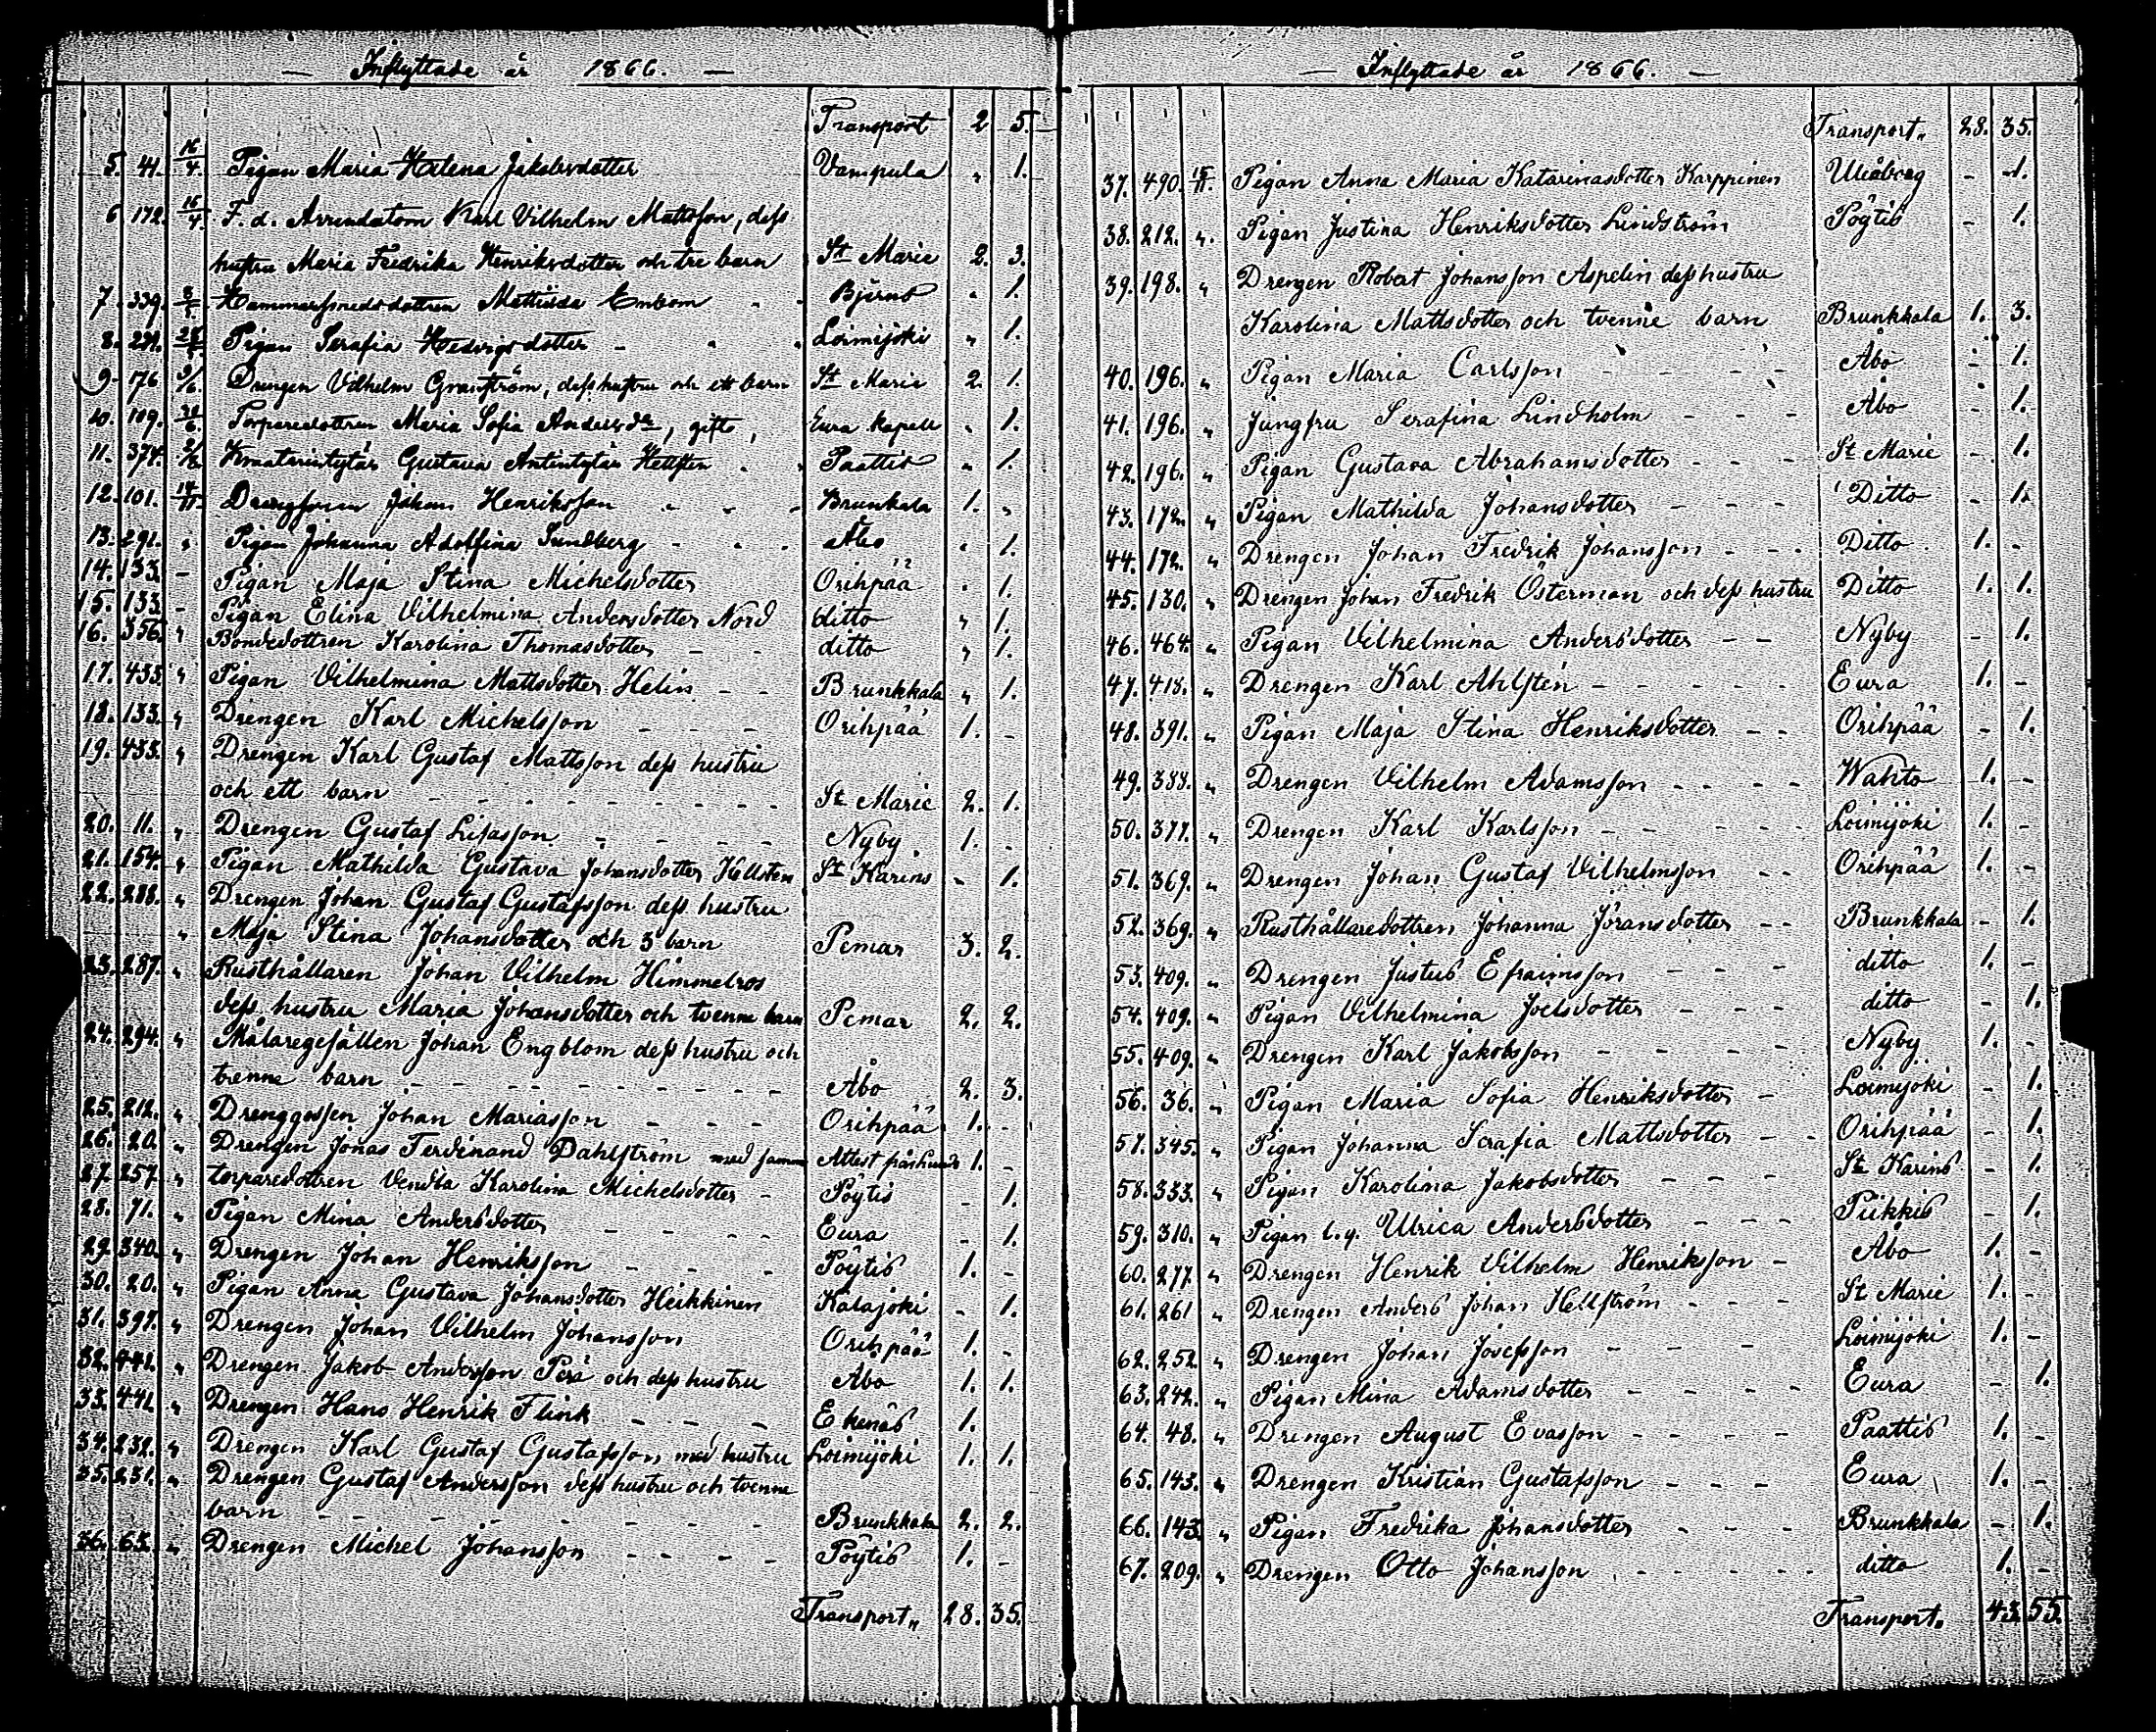 — Inflyttade år 1866. —
Transport 2 5.
5. 41. 16/4. Pigan Maria Helena Jakobsdotter Vampula „ 1.
6 172. 16/4. F. d. Arrendatorn Karl Vilhelm Mattsson, dess
hustru Maria Fredrika Henriksdotter och tre barn St Marie 2. 3.
7. 339. Hammarsmedsdottren Mathilda Enbom Bjerno „ 1.
8. 291. Pigan Serafia Hedvigsdotter – Loimijoki „ 1.
9. 176 9/6. Drengen Vilhelm Granström, dess hustru och ett barn St Marie 2. 1.
10. 109. 20/6. Torparedottren Maria Sofia Andersdr, gift, Eura kapell „ 1.
11. 374. Gustava Hellsten Paattis „ 1.
12. 101. 14/11. Johan Henriksson Brunkala 1. „
13. 291. „ Pigan Johanna Adolfina Sundberg – Åbo „ 1.
14. 133. – Pigan Maja Stina Michelsdotter Orihpää „ 1.
15. 133 – Pigan Elina Vilhelmina Andersdotter Nord ditto „ 1.
16. 356. „ Bondedottren Karolina Thomasdotter – – ditto „ 1.
17. 433. „ Pigan Vilhelmina Mattsdotter Helin – – Brunkkala „ 1.
18. 133. „ Drengen Karl Michelsson – – – Orihpää 1. –
19. 433. „ Drengen Karl Gustaf Mattsson dess hustru
och ett barn – – – – – – – – St Marie 2. 1.
20. 11. „ Drengen Gustaf Lisasson – – – – Nyby 1. –
21. 154. „ Pigan Mathilda Gustava Johansdotter Hellsten St Karins – 1.
22. 288. „ Drengen Johan Gustaf Gustafsson dess hustru
„ Maja Stina Johansdotter och 3 barn Pemar 3. 2.
23. 287. „ Rusthållaren Johan Vilhelm Himmelros
dess hustru Maria Johansdotter och tvenne barn Pemar 2. 2.
24. 294. „ Målaregesällen Johan Engblom dess hustru och
trenne barn – – – – – – – – Åbo 2. 3.
25. 212. „ Drenggossen Johan Mariasson – – – Orihpää 1. –
26. 20. „ Drengen Jonas Ferdinand Dahlström med samma Attest 1. –
27. 257. „ torparedottren Vendla Karolina Michelsdotter – Pöytis – 1.
28. 71. „ Pigan Mina Andersdotter – – – – Eura – 1.
29. 340. „ Drengen Johan Henriksson – – – Pöytis 1. –
30. 20. „ Pigan Anna Gustava Johansdotter Heikkinen Kalajoki – 1.
31. 397. „ Drengen Johan Vilhelm Johansson Orihpää 1. –
32. 441. „ Drengen Jakob Andersson Perä och dess hustru Åbo 1. 1.
33. 441. „ Drengen Hans Henrik Flink – – – Ekenäs 1.
34. 232. „ Drengen Karl Gustaf Gustafsson med hustru Loimijoki 1. 1.
35. 231. „ Drengen Gustaf Andersson dess hustru och tvenne
barn – – – – – – – – Brunkkala 2. 2.
36. 63. „ Drengen Michel Johansson – – – – Pöytis 1. –
Transport „ 28. 35.
— Inflyttade år 1866. —
Transport „ 28. 35.
37. 490. Pigan Anna Maria Katarinasdotter Karppinen Uleåborg – 1.
38. 212. „ Pigan Justina Henriksdotter Lindström Pöytis – 1.
39. 198. „ Drengen Robert Johansson Aspelin dess hustru
Karolina Mattsdotter och tvenne barn Brunkkala 1. 3.
40. 196. „ Pigan Maria Carlsson – – – – Åbo – 1.
41. 196. „ Jungfru Serafina Lindholm – – – Åbo – 1.
42. 196. „ Pigan Gustava Abrahamsdotter – – – St Marie – 1.
43. 172. „ Pigan Mathilda Johansdotter – – – Ditto – 1.
44. 172. „ Drengen Johan Fredrik Johansson – – – Ditto 1. –
45. 130. „ Drengen Johan Fredrik Österman och dess hustru Ditto 1. 1.
46. 464. „ Pigan Vilhelmina Andersdotter – – Nyby – 1.
47. 418. „ Drengen Karl Ahlstén – – – – – Eura 1. –
48. 391. „ Pigan Maja Stina Henriksdotter – – Orihpää – 1.
49. 388. „ Drengen Vilhelm Adamsson – – – – Wahto 1. –
50. 377. „ Drengen Karl Karlsson – – – – – Loimijoki 1. –
51. 369. „ Drengen Johan Gustaf Vilhelmsson – – Orihpää 1. –
52. 369. „ Rusthållaredottren Johanna Jöransdotter – – Brunkkala – 1.
53. 409. „ Drengen Justus Efraimsson – – – ditto 1. –
54. 409. „ Pigan Vilhelmina Joelsdotter – – – ditto – 1.
55. 409. „ Drengen Karl Jakobsson – – – – Nyby 1. –
56. 36. „ Pigan Maria Sofia Henriksdotter – Loimijoki – 1.
57. 345. „ Pigan Johanna Serafia Mattsdotter – – Orihpää – 1.
58. 333. „ Pigan Karolina Jakobsdotter – – – St Karins – 1.
59. 310. „ Pigan l. q. Ulrica Andersdotter – – – Piikkis – 1.
60. 277. „ Drengen Henrik Vilhelm Henriksson – Åbo 1. –
61. 261 „ Drengen Anders Johan Hellström – – – St Marie 1. –
62. 252. „ Drengen Johan Josefsson – – – Loimijoki 1. –
63. 242. „ Pigan Mina Adamsdotter – – – – Eura – 1.
64. 48. „ Drengen August Evasson – – – – Paattis 1. –
65. 143. „ Drengen Kristian Gustafsson – – – – Eura 1. –
66. 143. „ Pigan Fredrika Johansdotter – – – Brunkkala – 1.
67. 209. „ Drengen Otto Johansson – – – – – ditto 1. –
Transport „ 43. 55.